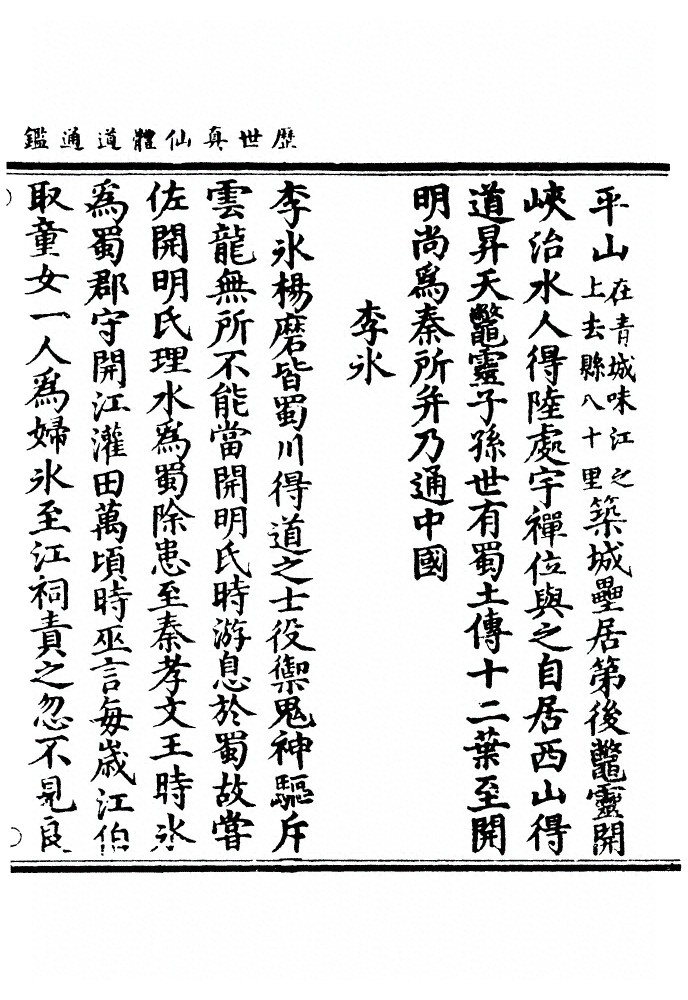 歷世真仙體道通鑑
平山在青城味江之上去縣八十里築城壘居第後鼈靈開
峽治水人得陸處宇禪位與之自居西山得
道昇天鼈靈子孫世有蜀土傳十二葉至開
明尚爲秦所并乃通中國
李氷
李氷楊磨皆蜀川得道之士役禦鬼神驅斥
雲龍無所不能當開明氏時游息於蜀故嘗
佐開明氏理水爲蜀除患至秦孝文王時氷
爲蜀郡守開江灌田萬頃時巫言每歲江伯
取童女一人爲婦氷至江祠責之忽不見良